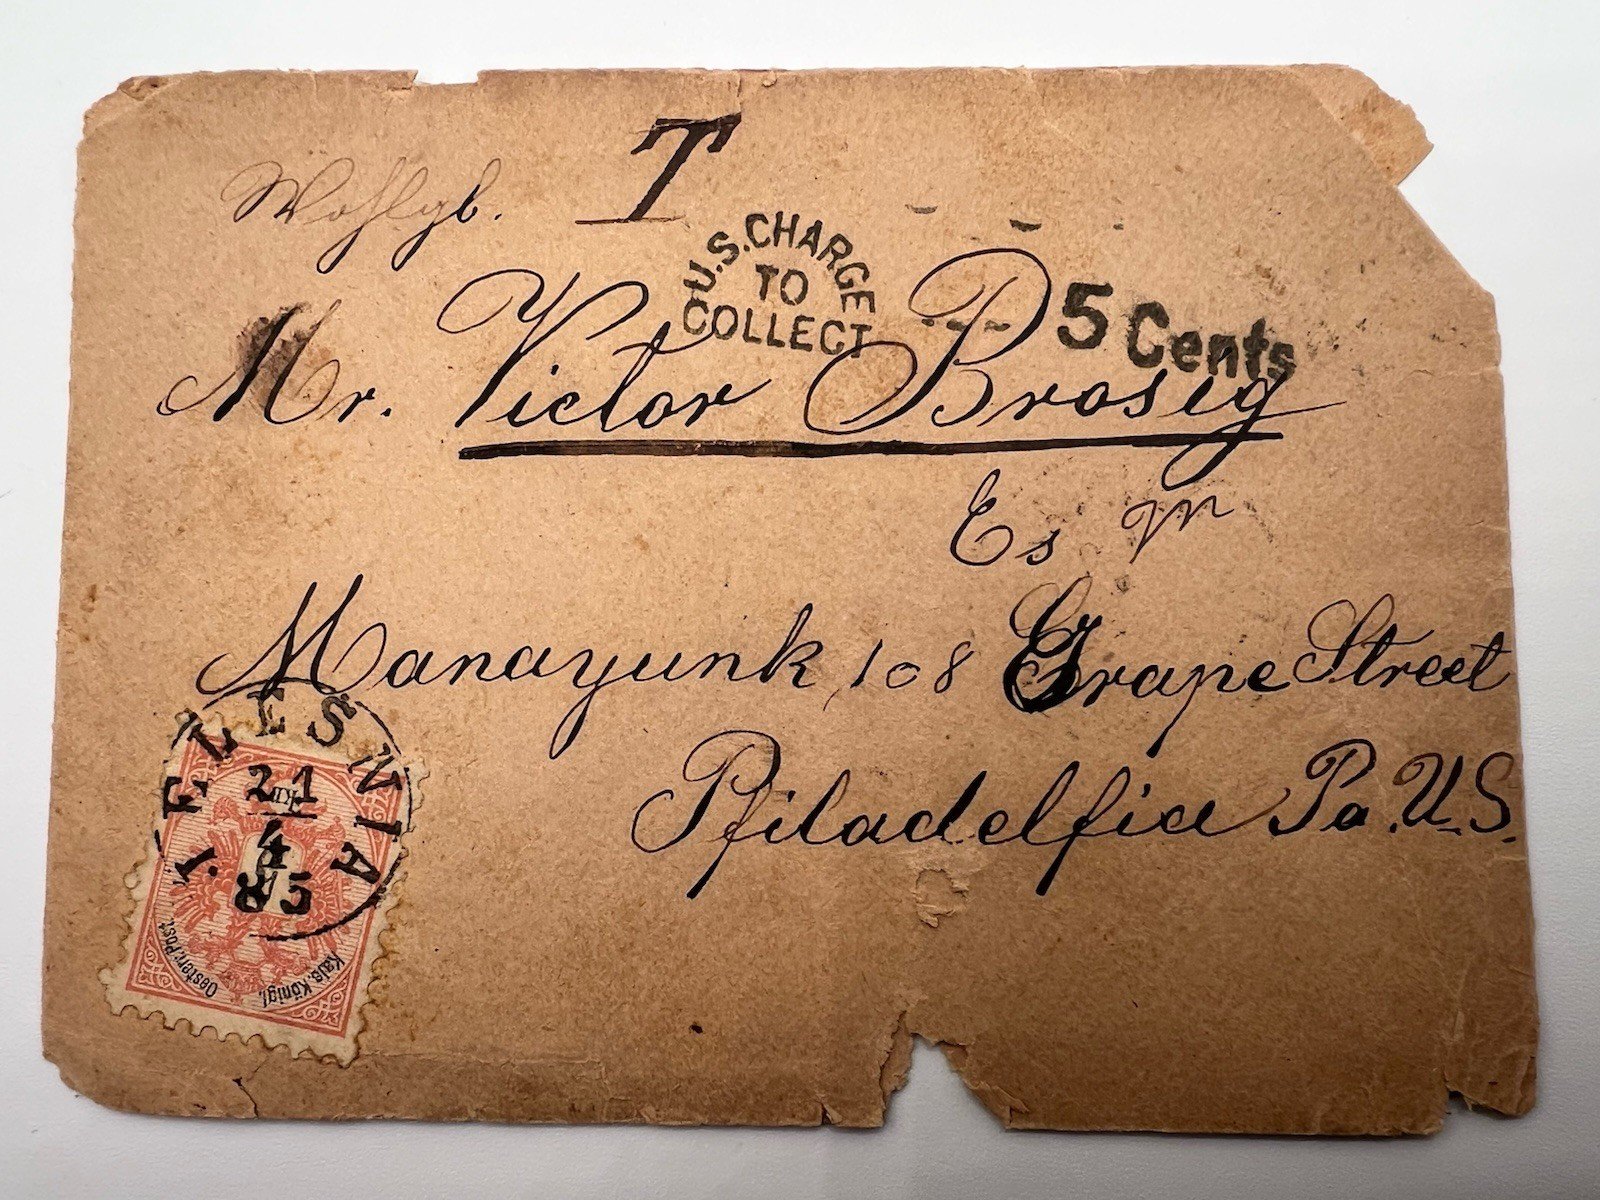 Wohlgb. T
U.S. CHARGE
TO
COLLECT
5 Cents
Mr. Victor Brosig
Es
Manayunk 108 Grape Street
Pfiladelfia Pa. U.S.
TELESNIA
21
4
85
Kais. Königl.
Oesterr. Post